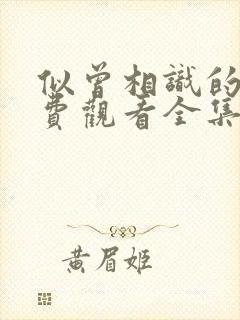 似曾相識的
費觀看全集
黃眉姬